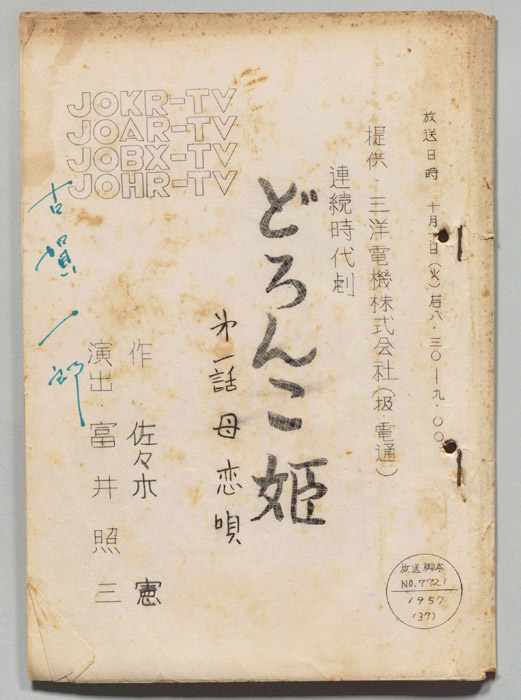 放送日時 十月 日(火)后八.三〇ー九.〇〇
提供.三洋電機株式会社(扱.電通)
連続時代劇
どろんこ姫
第一話 母恋唄
作.佐々木 憲
演出.富井照三
JOKR-TV
JOAR-TV
JOBX-TV
JOHR-TV
古賀一郎
放送脚本
NO.7721
1957
(37)